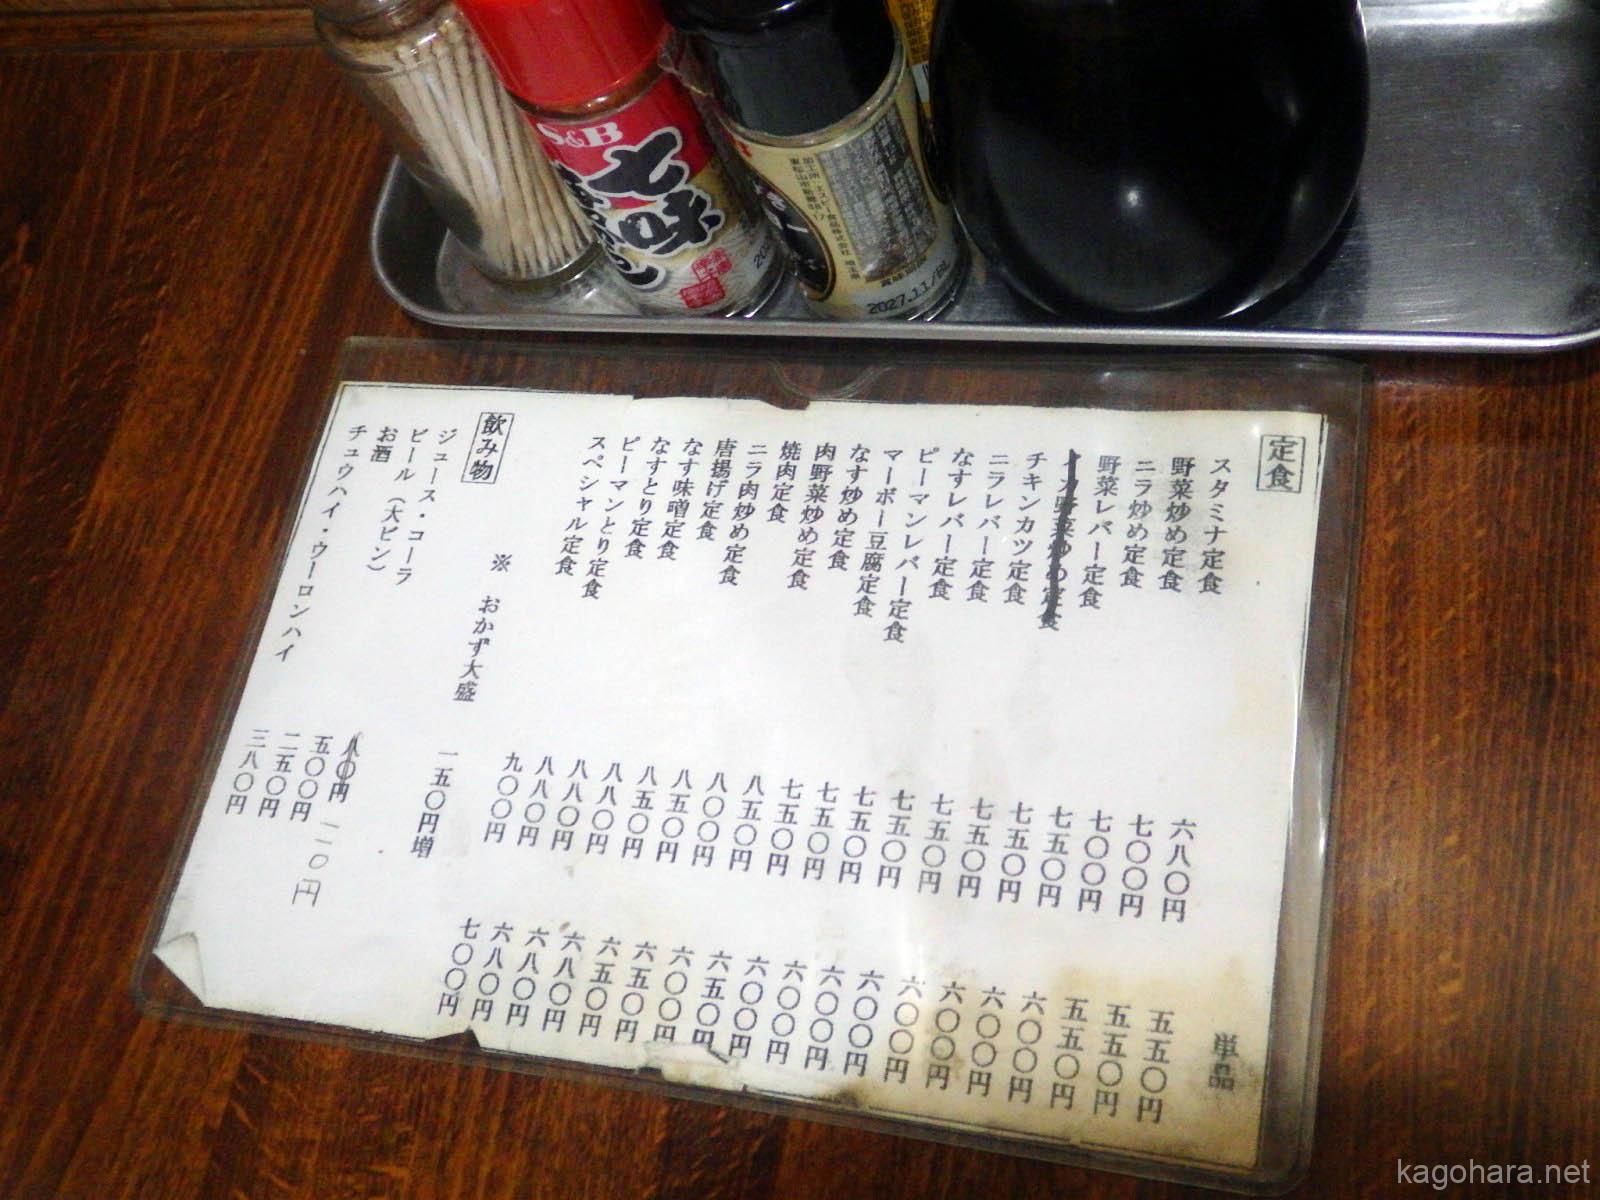 S&B
七味
2027.11
定食
単品
スタミナ定食 六八〇円 五五〇円
野菜炒め定食 七〇〇円 五五〇円
ニラ炒め定食 七〇〇円 五五〇円
野菜レバー定食 七五〇円 六〇〇円
イカ野菜炒め定食 七五〇円 六〇〇円
チキンカツ定食 七五〇円 六〇〇円
ニラレバー定食 七五〇円 六〇〇円
なすレバー定食 七五〇円 六〇〇円
ピーマンレバー定食 七五〇円 六〇〇円
マーボー豆腐定食 七五〇円 六〇〇円
なす炒め定食 七五〇円 六〇〇円
肉野菜炒め定食 八五〇円 六五〇円
焼肉定食 八〇〇円 六〇〇円
ニラ肉炒め定食 八五〇円 六五〇円
唐揚げ定食 八五〇円 六五〇円
なす味噌定食 八八〇円 六八〇円
なすとり定食 八八〇円 六八〇円
ピーマンとり定食 八八〇円 六八〇円
スペシャル定食 九〇〇円 七〇〇円
※ おかず大盛 一五〇円増
飲み物
ジュース・コーラ 八〇円 一一〇円
ビール（大ビン） 五〇〇円
お酒 二五〇円
チュウハイ・ウーロンハイ 三八〇円
kagohara.net